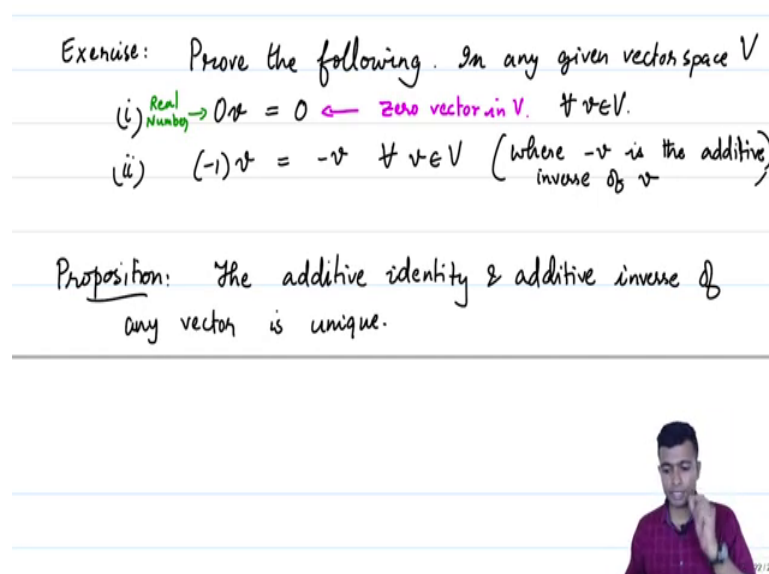 Exercise: Prove the following. In any given vector space V
(i) Real Number → 0v = 0 ← zero vector in V. ∀ v∈V.
(ii) (-1)v = -v ∀ v∈V (where -v is the additive
inverse of v)
Proposition: The additive identity & additive inverse of
any vector is unique.